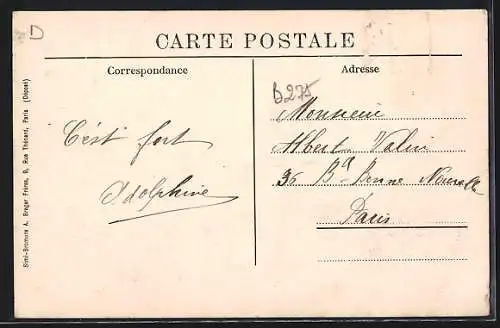 D
CARTE POSTALE
Correspondance
Adresse
B275
C'est fort
Adolphine
Monsieur
Albert Valin
35 Bd Bonne Nouvelle
Paris
Simi-Bromure A. Breger Frères, 9, Rue Thénard, Paris (Déposé)